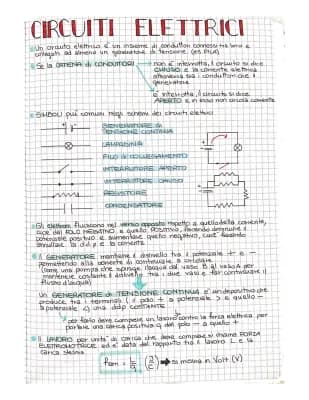 CIRCUITI ELETTRICI
Un circuito elettrico è un insieme di conduttori connessi tra loro e
collegati ad almeno un generatore di tensione. (es. PILA)
Se la CATENA DI CONDUTTORI
non è interrotta, il circuito si dice
CHIUSO e la corrente elettrica
attraversa sia i conduttori che il
generatore
è interrotta, il circuito si dice
APERTO e in esso non circola corrente
SIMBOLI più comuni negli schemi dei circuiti elettrici
GENERATORE di
TENSIONE CONTINUA
LAMPADINA
FILO DI COLLEGAMENTO
INTERRUTTORE APERTO
INTERRUTTORE CHIUSO
RESISTORE
CONDENSATORE
Gli elettroni fluiscono nel verso opposto rispetto a quello della corrente,
cioè dal POLO NEGATIVO a quello POSITIVO, facendo diminuire il
potenziale positivo e aumentare quello negativo, così facendo
annullare la d.d.p e la corrente
Il GENERATORE mantiene il dislivello tra i potenziali + e -
permettendo alla corrente di continuare a circolare.
(come una pompa che spinge l'acqua dal vaso B al vaso A per
mantenere costante il dislivello tra i due vasi e far continuare il
flusso d'acqua)
Un GENERATORE di TENSIONE CONTINUA è un dispositivo che
produce tra i terminali (il polo + a potenziale > e quello -
a potenziale <) una ddp costante
per farlo deve compiere un lavoro contro la forza elettrica per
portare una carica positiva q dal polo - a quello +
Il LAVORO per unità di carica che deve compiere si chiama FORZA
ELETTROMOTRICE ed è data dal rapporto tra il lavoro L e la
carica stessa
fem = L/q (J/C) → si misura in Volt (V)